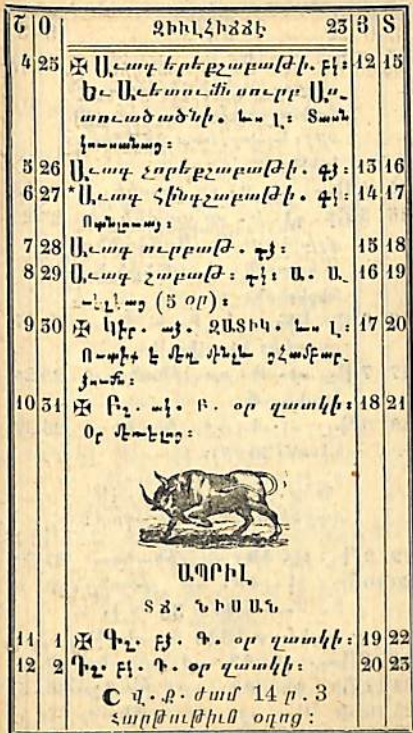 Շ Օ ԶԻԻԼՀԻՃՃԷ 23 Յ Տ
4 25 ✠ Աւագ երեքշաբաթի. բկ: 12 15
Եւ Աւետումն սուրբ Աս_
տուածածնի. Տասն
5 26 Աւագ չորեքշաբաթի. գձ: 13 16
6 27 *Աւագ հինգշաբաթի. գկ: 14 17
Ոտնլուայ:
7 28 Աւագ ուրբաթ. դձ: 15 18
8 29 Աւագ շաբաթ: դկ: Ա. Ա_ 16 19
(5 օր):
9 30 ✠ Կիր. աձ. ԶԱՏԻԿ. 17 20
Ուտիք է մեզ մինչև ցՀամբար_
ձումն:
10 31 ✠ Բշ. ակ. Բ. օր զատկի: 18 21
Օր մեռելոց:
ԱՊՐԻԼ
ՏՃ. ՆԻՍԱՆ
11 1 ✠ Գշ. բձ. Գ. օր զատկի: 19 22
12 2 Դշ. բկ. Դ. օր զատկի: 20 23
☾ վ. ք. ժամ 14 ր. 3
Հարթութիւն օդոց: